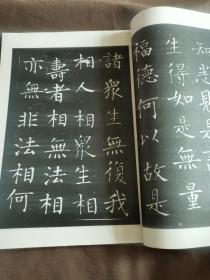 知悉見是
生得如是無量
福德何以故是
諸衆生無復我
相人相衆生相
壽者相無法相
亦無非法相何